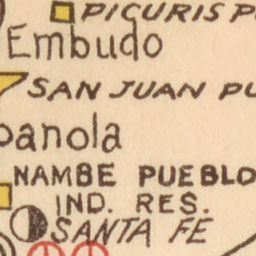 PICURIS P
Embudo
SAN JUAN PU
panola
NAMBE PUEBLO
IND. RES.
SANTA FE